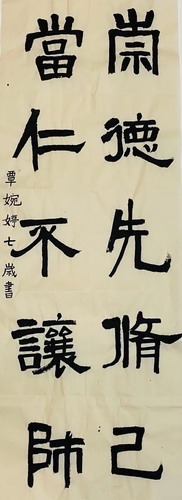 崇德先脩己
當仁不讓師
覃婉婷七歲書